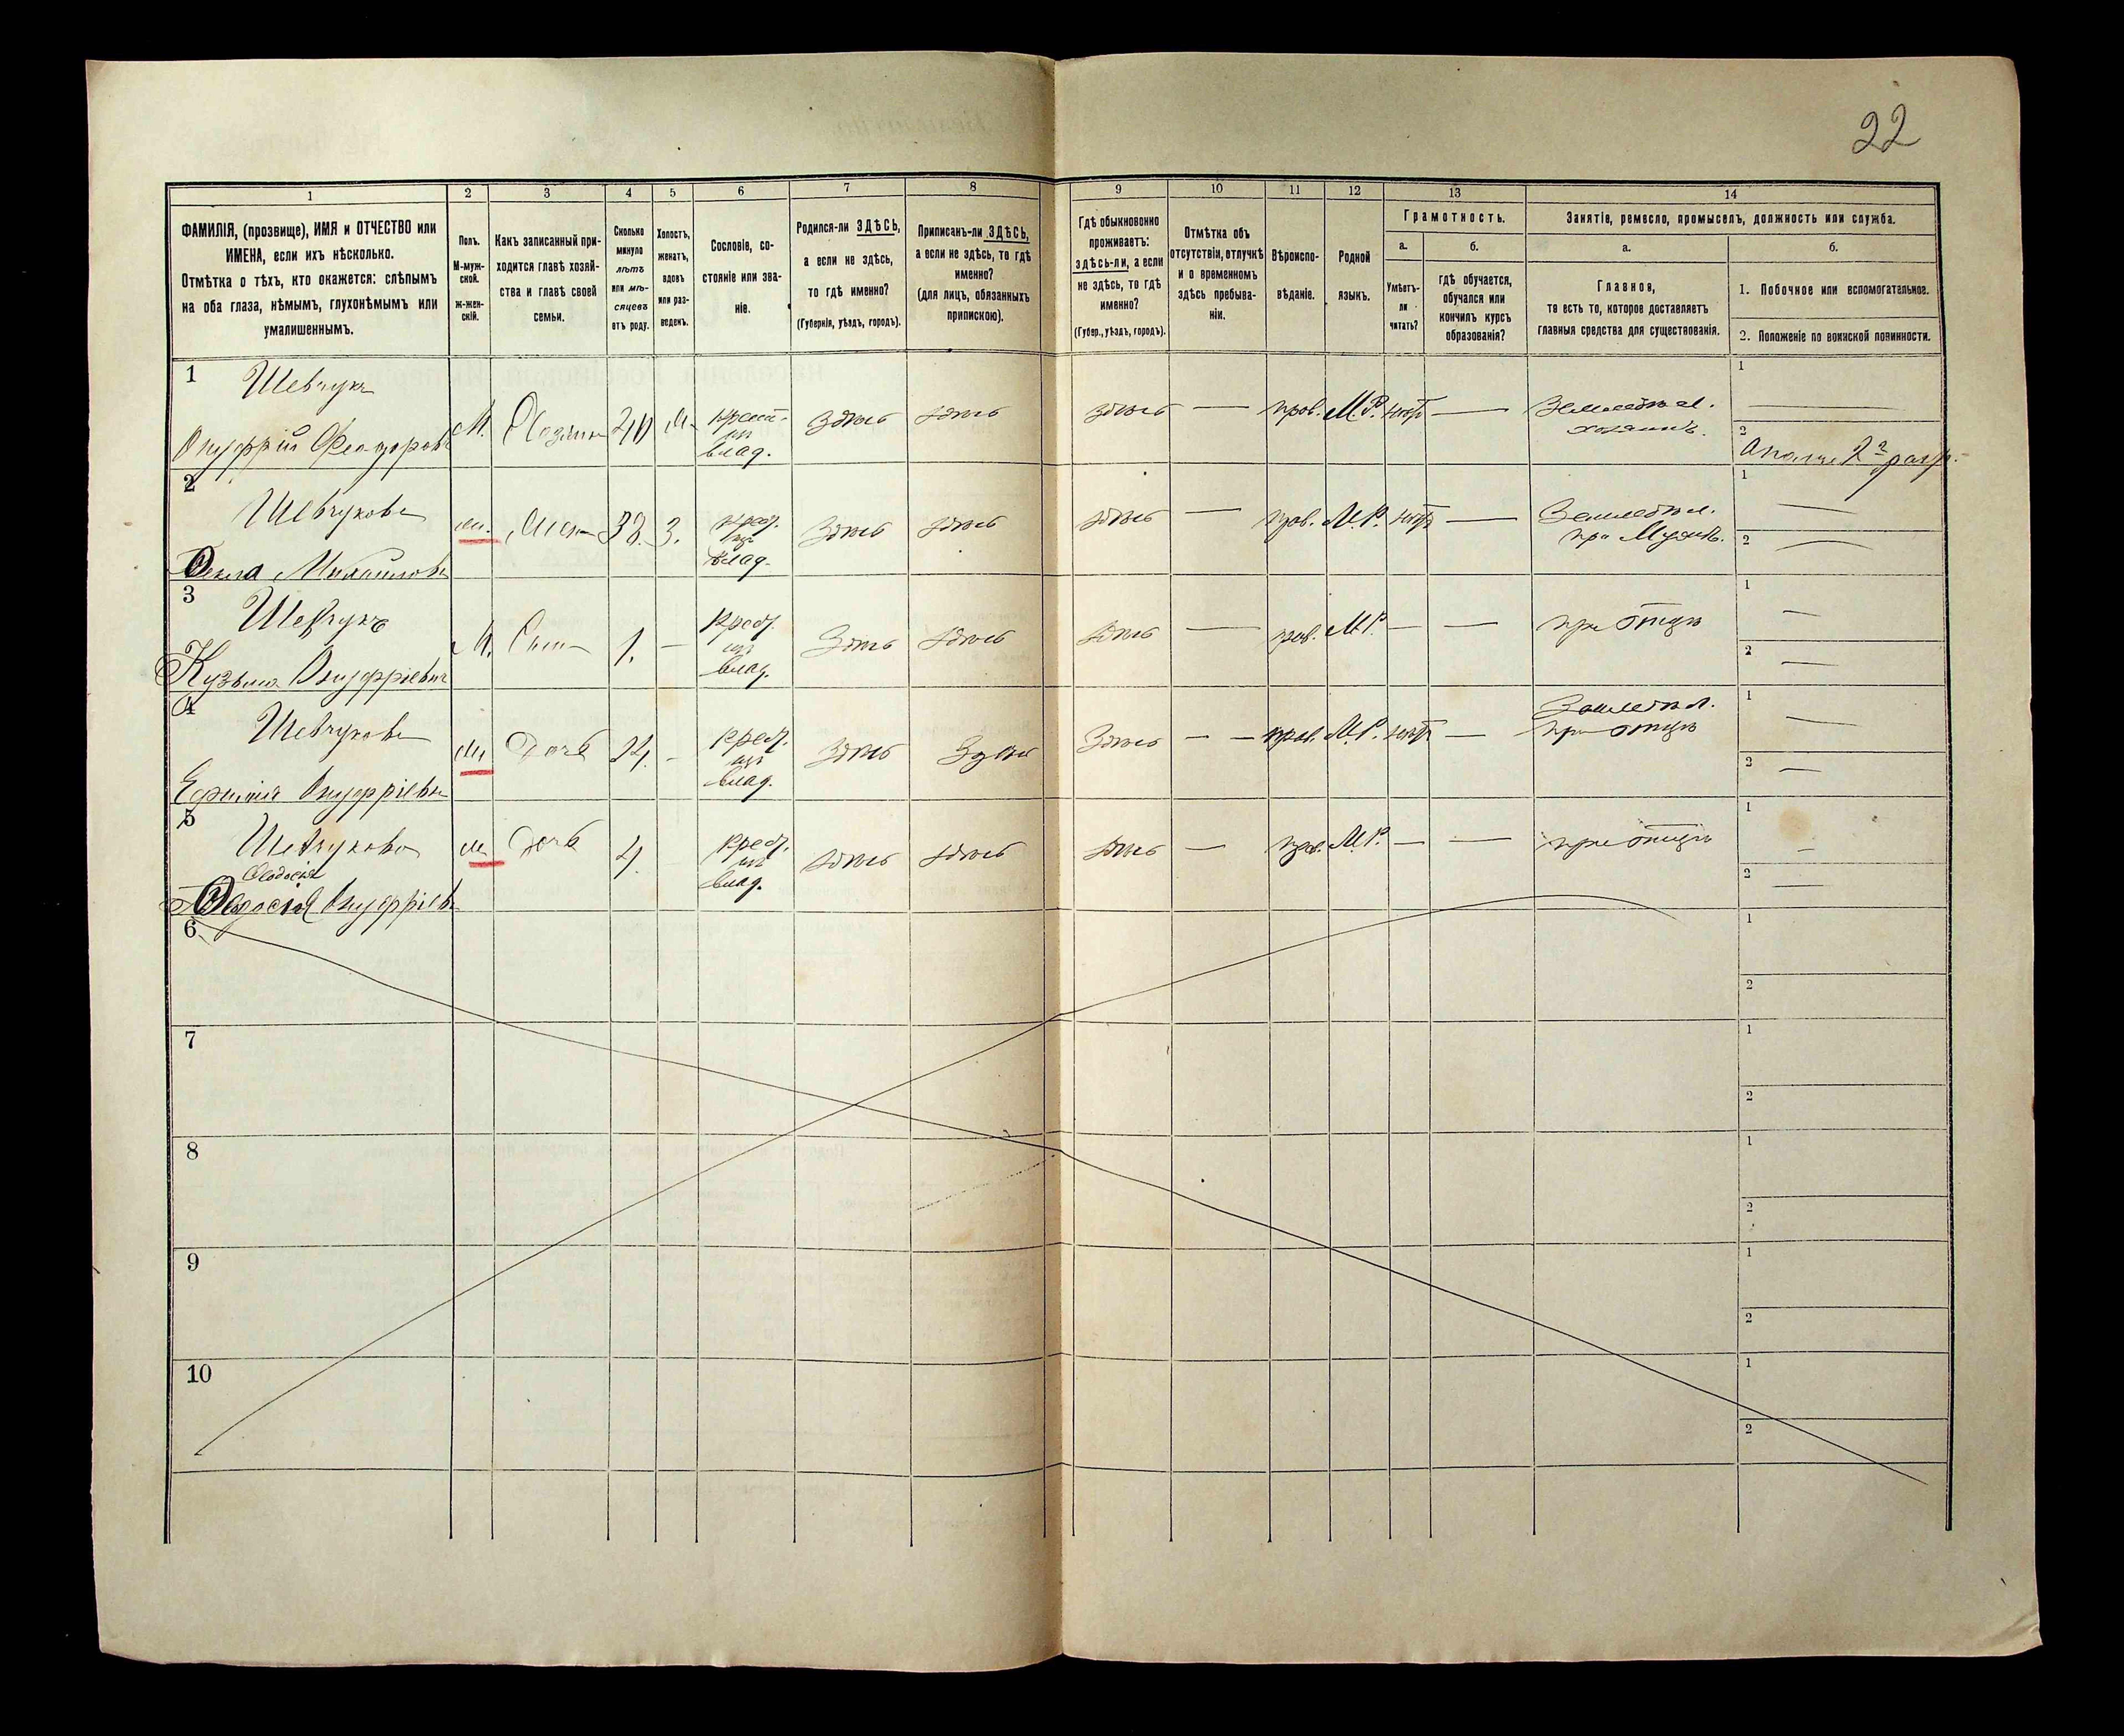 22
1 2 3 4 5 6 7 8 9 10 11 12 13 14
ФАМИЛІЯ, (прозвище), ИМЯ и ОТЧЕСТВО или
ИМЕНА, если ихъ нѣсколько.
Отмѣтка о тѣхъ, кто окажется: слѣпымъ
на оба глаза, нѣмымъ, глухонѣмымъ или
умалишеннымъ.
Полъ.
М-муж-
ской.
Ж-жен-
скій.
Какъ записанный при-
ходится главѣ хозяй-
ства и главѣ своей
семьи.
Сколько
минуло
лѣтъ
или мѣ-
сяцевъ
отъ роду.
Холостъ,
женатъ,
вдовъ
или раз-
веденъ.
Сословіе, со-
стояніе или зва-
ніе.
Родился-ли ЗДѢСЬ,
а если не здѣсь,
то гдѣ именно?
(Губернія, уѣздъ, городъ).
Приписанъ-ли ЗДѢСЬ,
а если не здѣсь, то гдѣ
именно?
(для лицъ, обязанныхъ
припискою).
Гдѣ обыкновенно
проживаетъ:
здѣсь-ли, а если
не здѣсь, то гдѣ
именно?
(Губер., уѣздъ, городъ).
Отмѣтка объ
отсутствіи, отлучкѣ
и о временномъ
здѣсь пребыва-
ніи.
Вѣроиспо-
вѣданіе.
Родной
языкъ.
Грамотность.
а.
Умѣетъ-
ли
читать?
б.
гдѣ обучается,
обучался или
кончилъ курсъ
образованія?
Занятіе, ремесло, промыселъ, должность или служба.
а.
Главное,
то есть то, которое доставляетъ
главныя средства для существованія.
б.
1. Побочное или вспомогательное.
2. Положеніе по воинской повинности.
1 Шевчукъ
Онуфрій Феодоров
М. Хозяин 40 крест. из влад. здѣсь здѣсь здѣсь — прав. М.Р. — Земледѣл. хозяинъ. 1 — 2
2 Шевчукова
Фекла Михайлов
Жена 38 З. крест. из влад. здѣсь здѣсь здѣсь — прав. М.Р. — Земледѣл. при Мужѣ. 1 — 2 —
3 Шевчукъ
Кузьма Онуфріевич
М. Сын 1. — крест. из влад. здѣсь здѣсь здѣсь — прав. М.Р. — — при отцѣ 1 — 2 —
4 Шевчукова
Онуфріевн
Дочь 14. - крест. из влад. здѣсь здѣсь здѣсь — прав. М.Р. — Земледѣл. при отцѣ 1 — 2 —
5 Шевчукова
Ѳеодосія
Ѳеодосія Онуфріев
Дочь 4. крест. из влад. здѣсь здѣсь здѣсь — прав. М.Р. — — при отцѣ 1 — 2 —
6 1 2
7 1 2
8 1 2
9 1 2
10 1 2